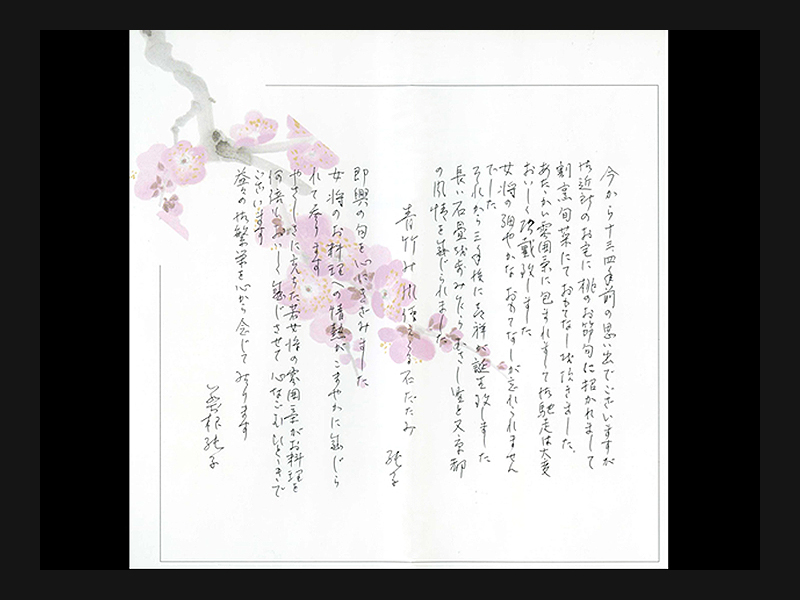 今から十三四年前の思い出でございますが
御近許のお宅に桃のお節句に招かれまして
割烹旬菜にておもてなし頂きました。
あたたかい雰囲気に包まれまして御馳走は大変
おいしく頂戴致しました
女将の細やかなおもてなしが忘れられません
でした
それから三年後に吉祥が誕生致しました
長い石畳
の風情を感じられました
青竹 石だたみ
純子
即興の句を心にきざみました
女将のお料理への情熱がこまやかに感じら
れて参ります
やさしさに充ちた若女将の雰囲気がお料理を
何倍もおいしく感じさせて心なごむひとときで
ございます
益々の御繁栄を心から念じております
純子